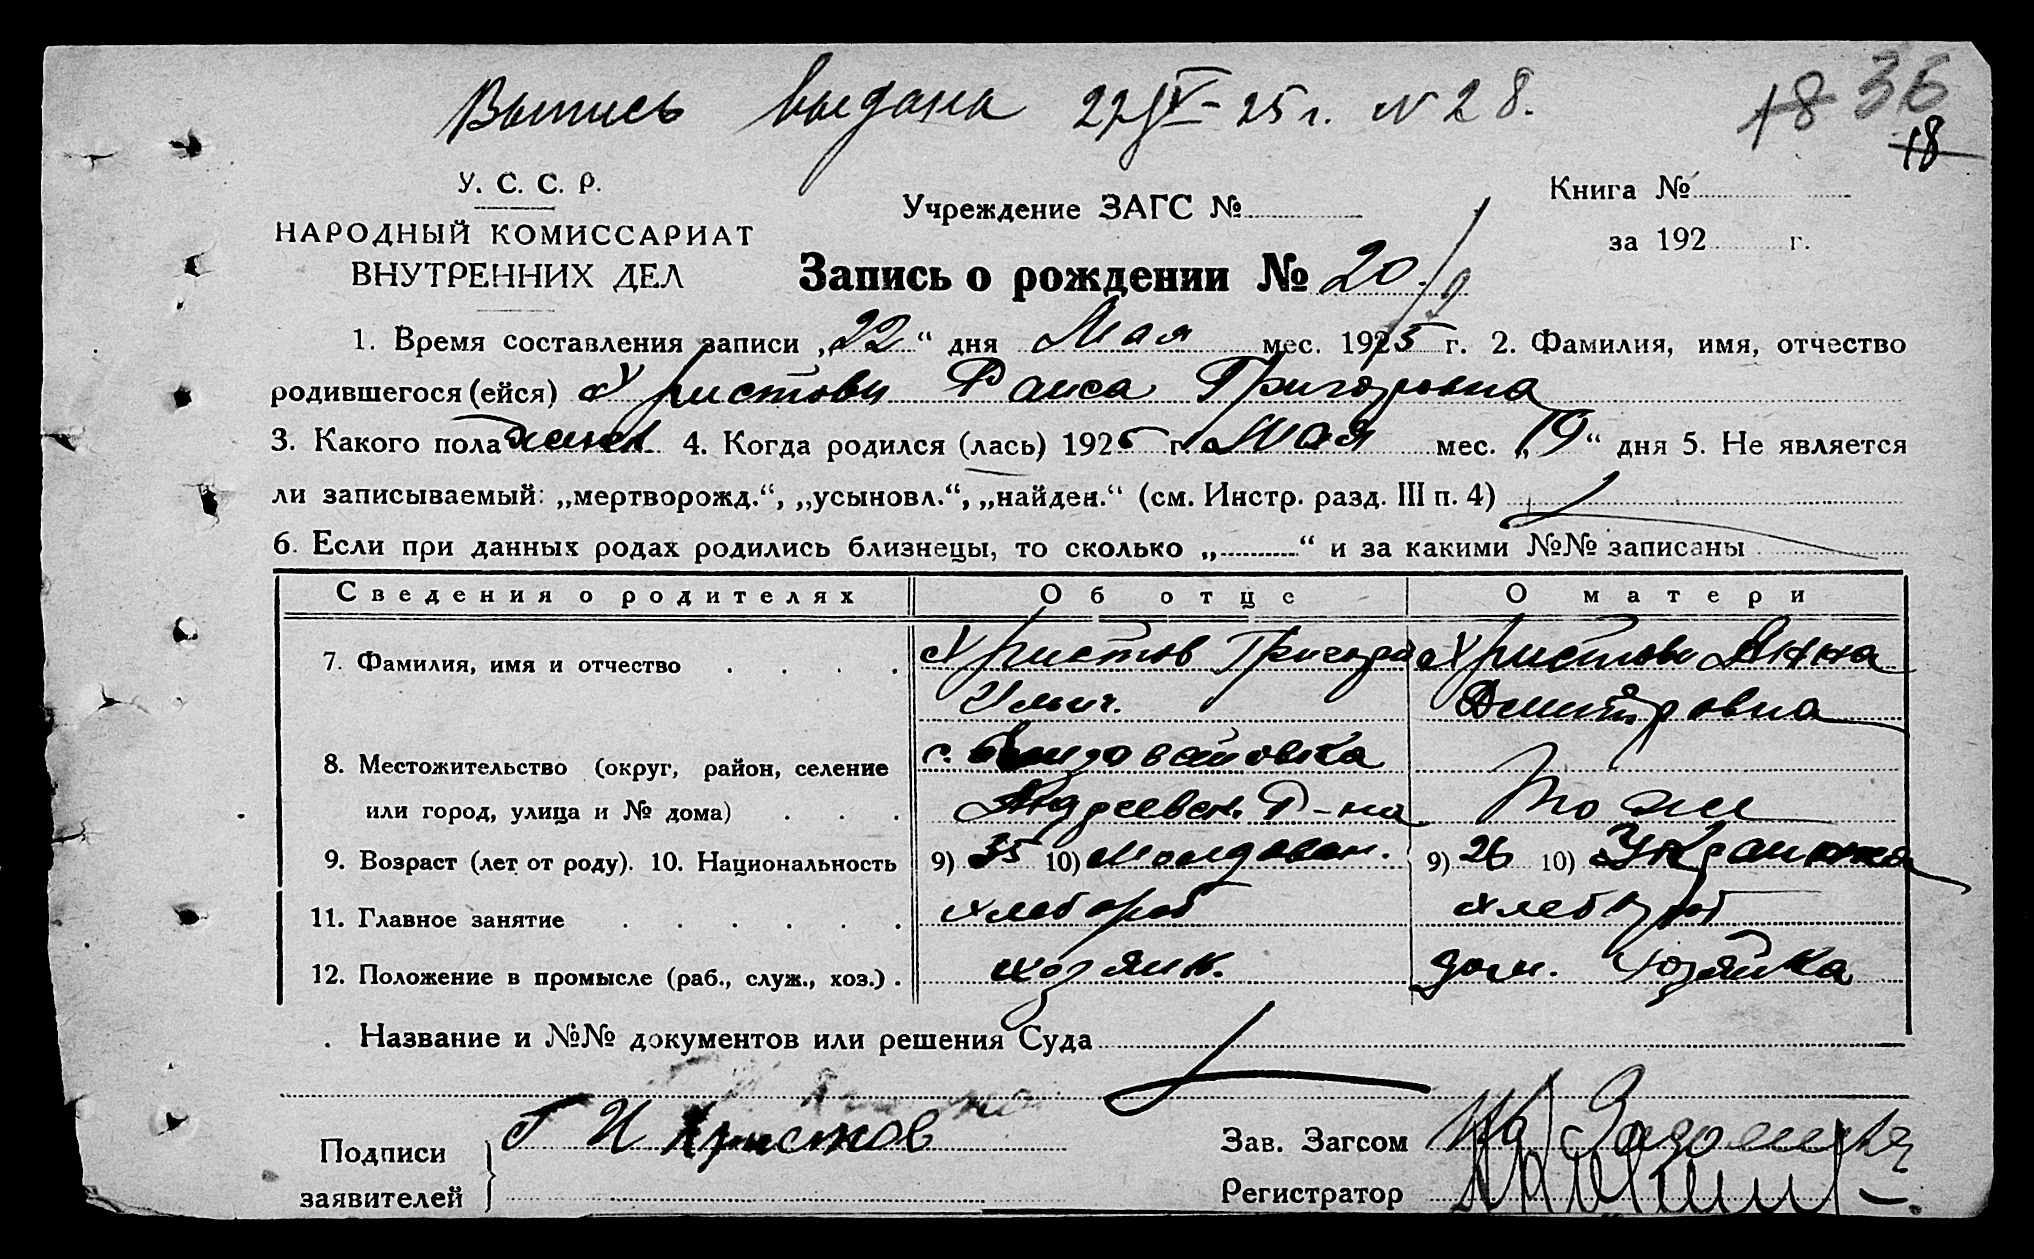 Выпись выдана 22/V-25 г. N 28.
18 36
18
У. С. С. Р.
НАРОДНЫЙ КОМИССАРИАТ
ВНУТРЕННИХ ДЕЛ
Учреждение ЗАГС №
Книга №
за 192 г.
Запись о рождении № 20
1. Время составления записи „22“ дня Мая мес. 1925 г. 2. Фамилия, имя, отчество
родившегося (ейся) Христова Раиса Григоровна
3. Какого пола женск 4. Когда родился (лась) 1925 г. Мая мес. „19“ дня 5. Не является
ли записываемый: „мертворожд.“, „усыновл.“, „найден.“ (см. Инстр. разд. III п. 4)
6. Если при данных родах родились близнецы, то сколько „ “ и за какими №№ записаны
Сведения о родителях Об отце О матери
7. Фамилия, имя и отчество Христов Григорий Христова Анна
Ильич. Дмитровна
8. Местожительство (округ, район, селение с.
или город, улица и № дома) Андреевск. Р-на То же
9. Возраст (лет от роду). 10. Национальность 9) 35 10) молдован. 9) 26 10) Украинка
11. Главное занятие хлебороб хлебороб
12. Положение в промысле (раб., служ., хоз.) хозяин. дом. хозяйка
Название и №№ документов или решения Суда
Подписи
заявителей
Г И Христов
Зав. Загсом
Регистратор